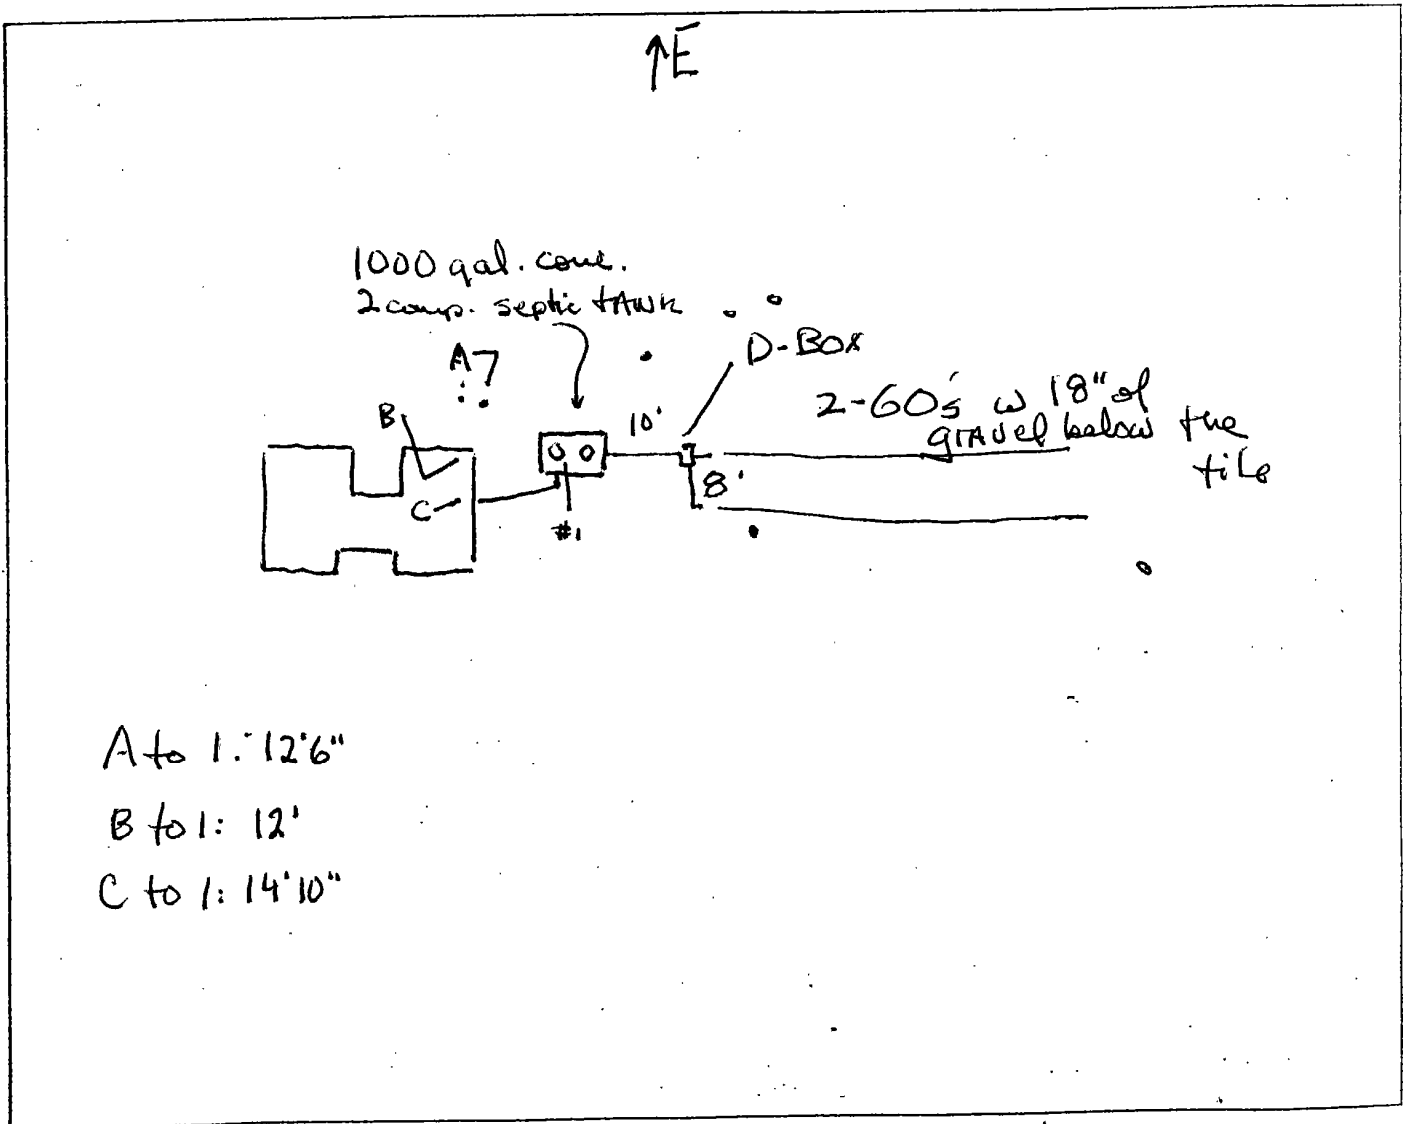 ↑E
1000 gal. conc.
2 comp. septic tANK
A
D-BOX
B
10'
2-60's w 18" of
grAvel below the
tile
C
8'
#1
A to 1: 12'6"
B to 1: 12'
C to 1: 14'10"